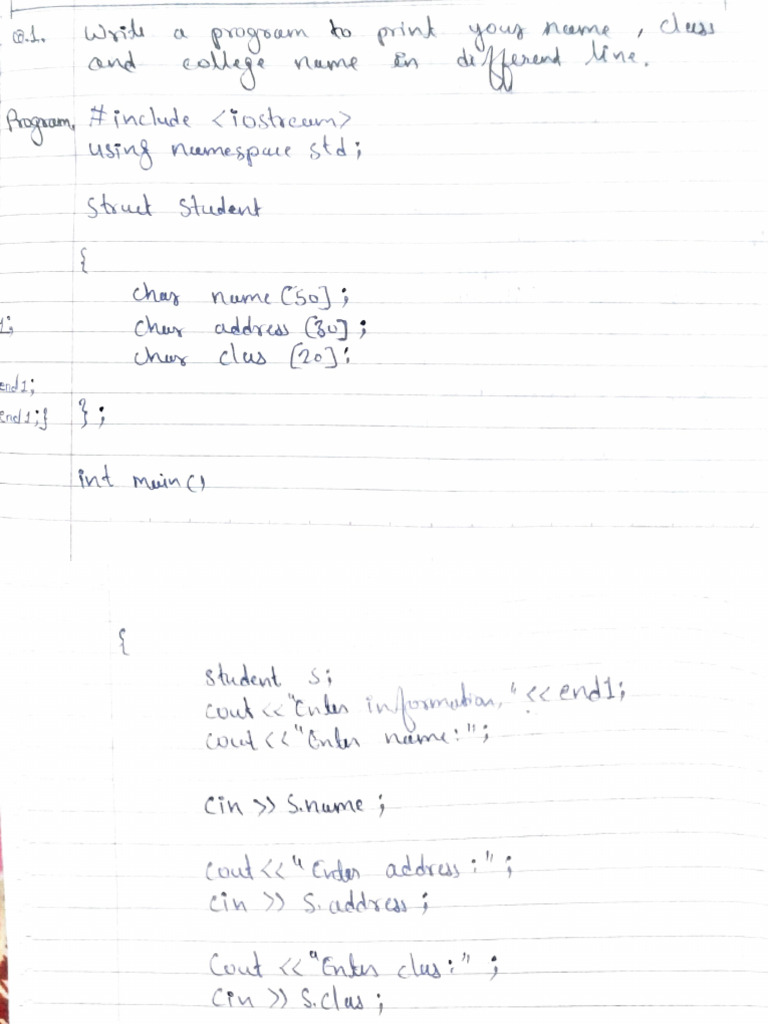 Q.1. Write a program to print your name, class
and college name in different line.
Program. #include <iostream>
using namespace std;
struct student
{
char name [50];
1;
char address [30];
char clas [20]:
end1;
end1;} };
int main()
{
student s;
cout <<"Enter information," << end1;
cout <<"Enter name:";
cin >> S.name;
cout <<"Enter address:";
cin >> S.address;
Cout <<"Enter clas:";
cin >> S.clas;